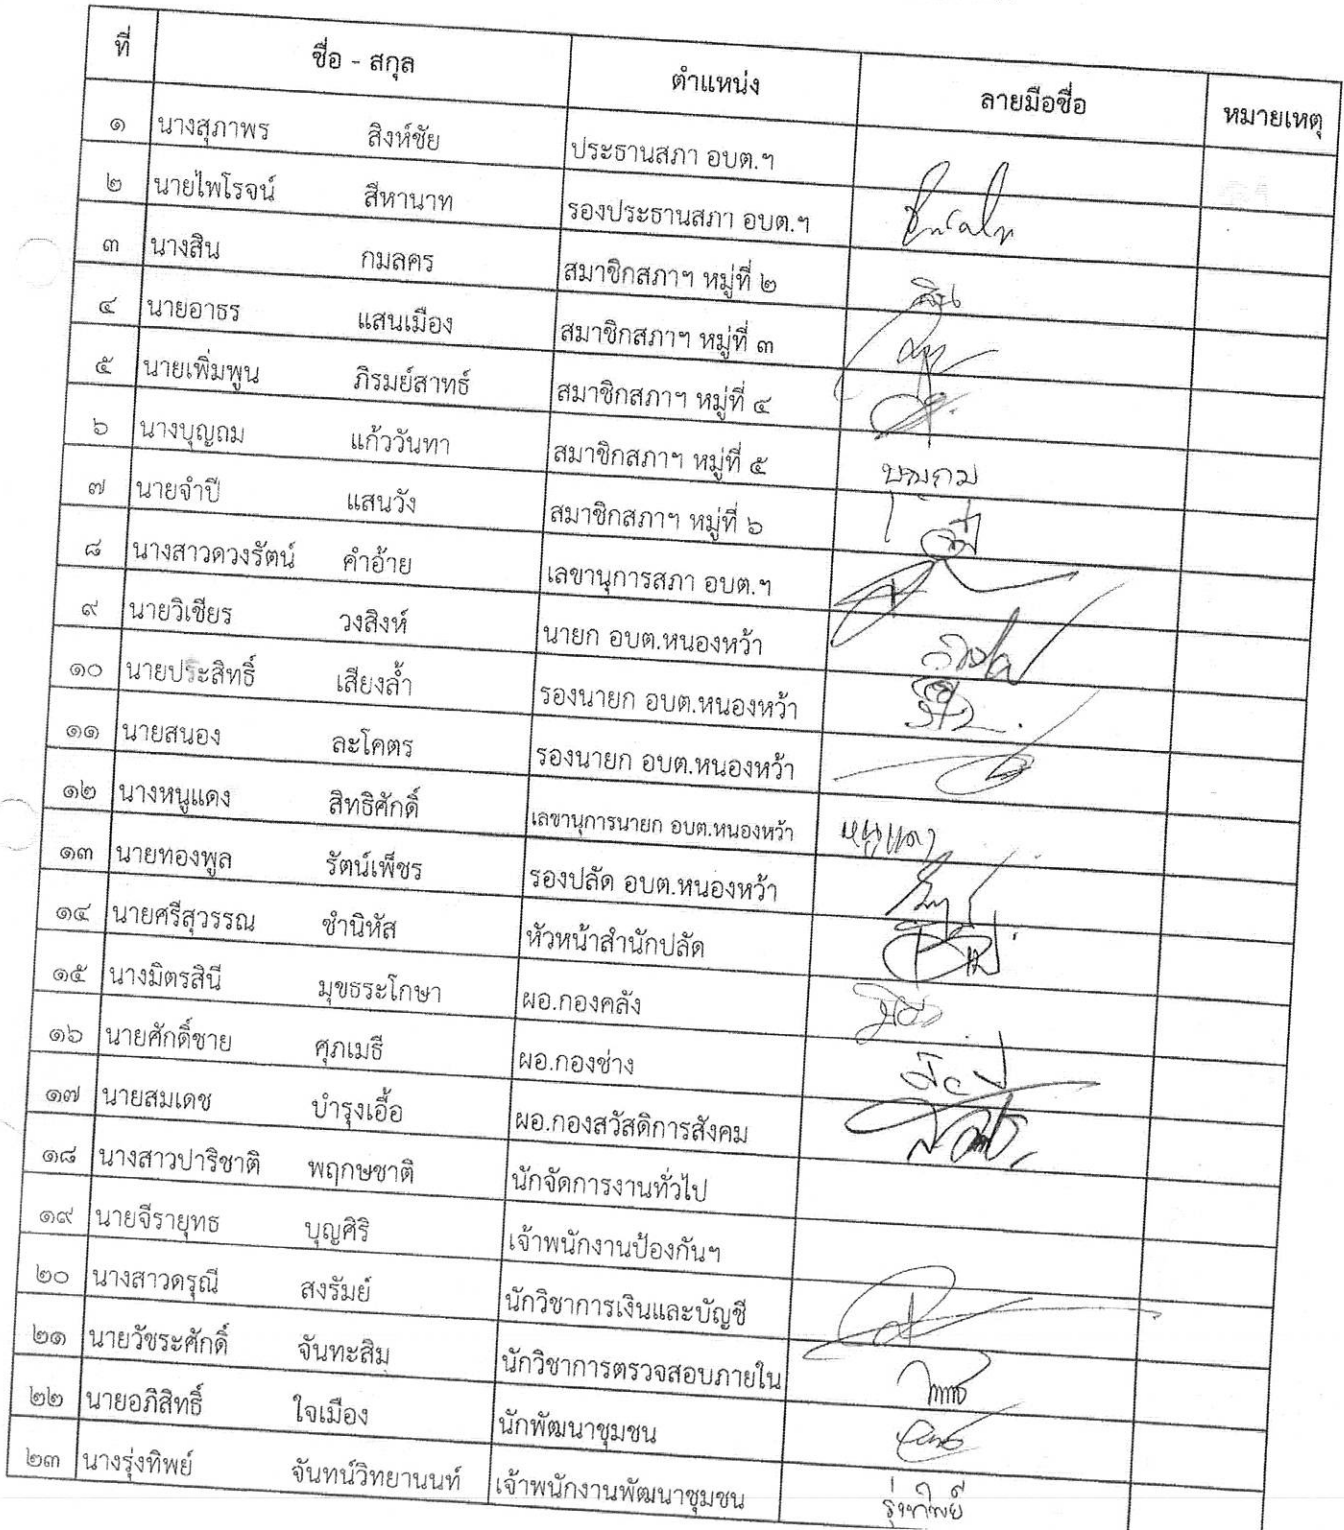 ที่ ชื่อ - สกุล ตำแหน่ง ลายมือชื่อ หมายเหตุ
๑ นางสุภาพร สิงห์ชัย ประธานสภา อบต.ฯ
๒ นายไพโรจน์ สีหานาท รองประธานสภา อบต.ฯ
๓ นางสิน กมลคร สมาชิกสภาฯ หมู่ที่ ๒ สิน
๔ นายอาธร แสนเมือง สมาชิกสภาฯ หมู่ที่ ๓
๕ นายเพิ่มพูน ภิรมย์สาทธ์ สมาชิกสภาฯ หมู่ที่ ๔
๖ นางบุญถม แก้ววันทา สมาชิกสภาฯ หมู่ที่ ๕
๗ นายจำปี แสนวัง สมาชิกสภาฯ หมู่ที่ ๖
๘ นางสาวดวงรัตน์ คำอ้าย เลขานุการสภา อบต.ฯ
๙ นายวิเชียร วงสิงห์ นายก อบต.หนองหว้า
๑๐ นายประสิทธิ์ เสียงล้ำ รองนายก อบต.หนองหว้า
๑๑ นายสนอง ละโคตร รองนายก อบต.หนองหว้า
๑๒ นางหนูแดง สิทธิศักดิ์ เลขานุการนายก อบต.หนองหว้า หนูแดง
๑๓ นายทองพูล รัตน์เพ็ชร รองปลัด อบต.หนองหว้า
๑๔ นายศรีสุวรรณ ชำนิหัส หัวหน้าสำนักปลัด
๑๕ นางมิตรสินี มุขธระโกษา ผอ.กองคลัง
๑๖ นายศักดิ์ชาย ศุภเมธี ผอ.กองช่าง
๑๗ นายสมเดช บำรุงเอื้อ ผอ.กองสวัสดิการสังคม
๑๘ นางสาวปาริชาติ พฤกษชาติ นักจัดการงานทั่วไป
๑๙ นายจีรายุทธ บุญศิริ เจ้าพนักงานป้องกันฯ
๒๐ นางสาวดรุณี สงรัมย์ นักวิชาการเงินและบัญชี
๒๑ นายวัชระศักดิ์ จันทะสิม นักวิชาการตรวจสอบภายใน
๒๒ นายอภิสิทธิ์ ใจเมือง นักพัฒนาชุมชน
๒๓ นางรุ่งทิพย์ จันทน์วิทยานนท์ เจ้าพนักงานพัฒนาชุมชน รุ่งทิพย์